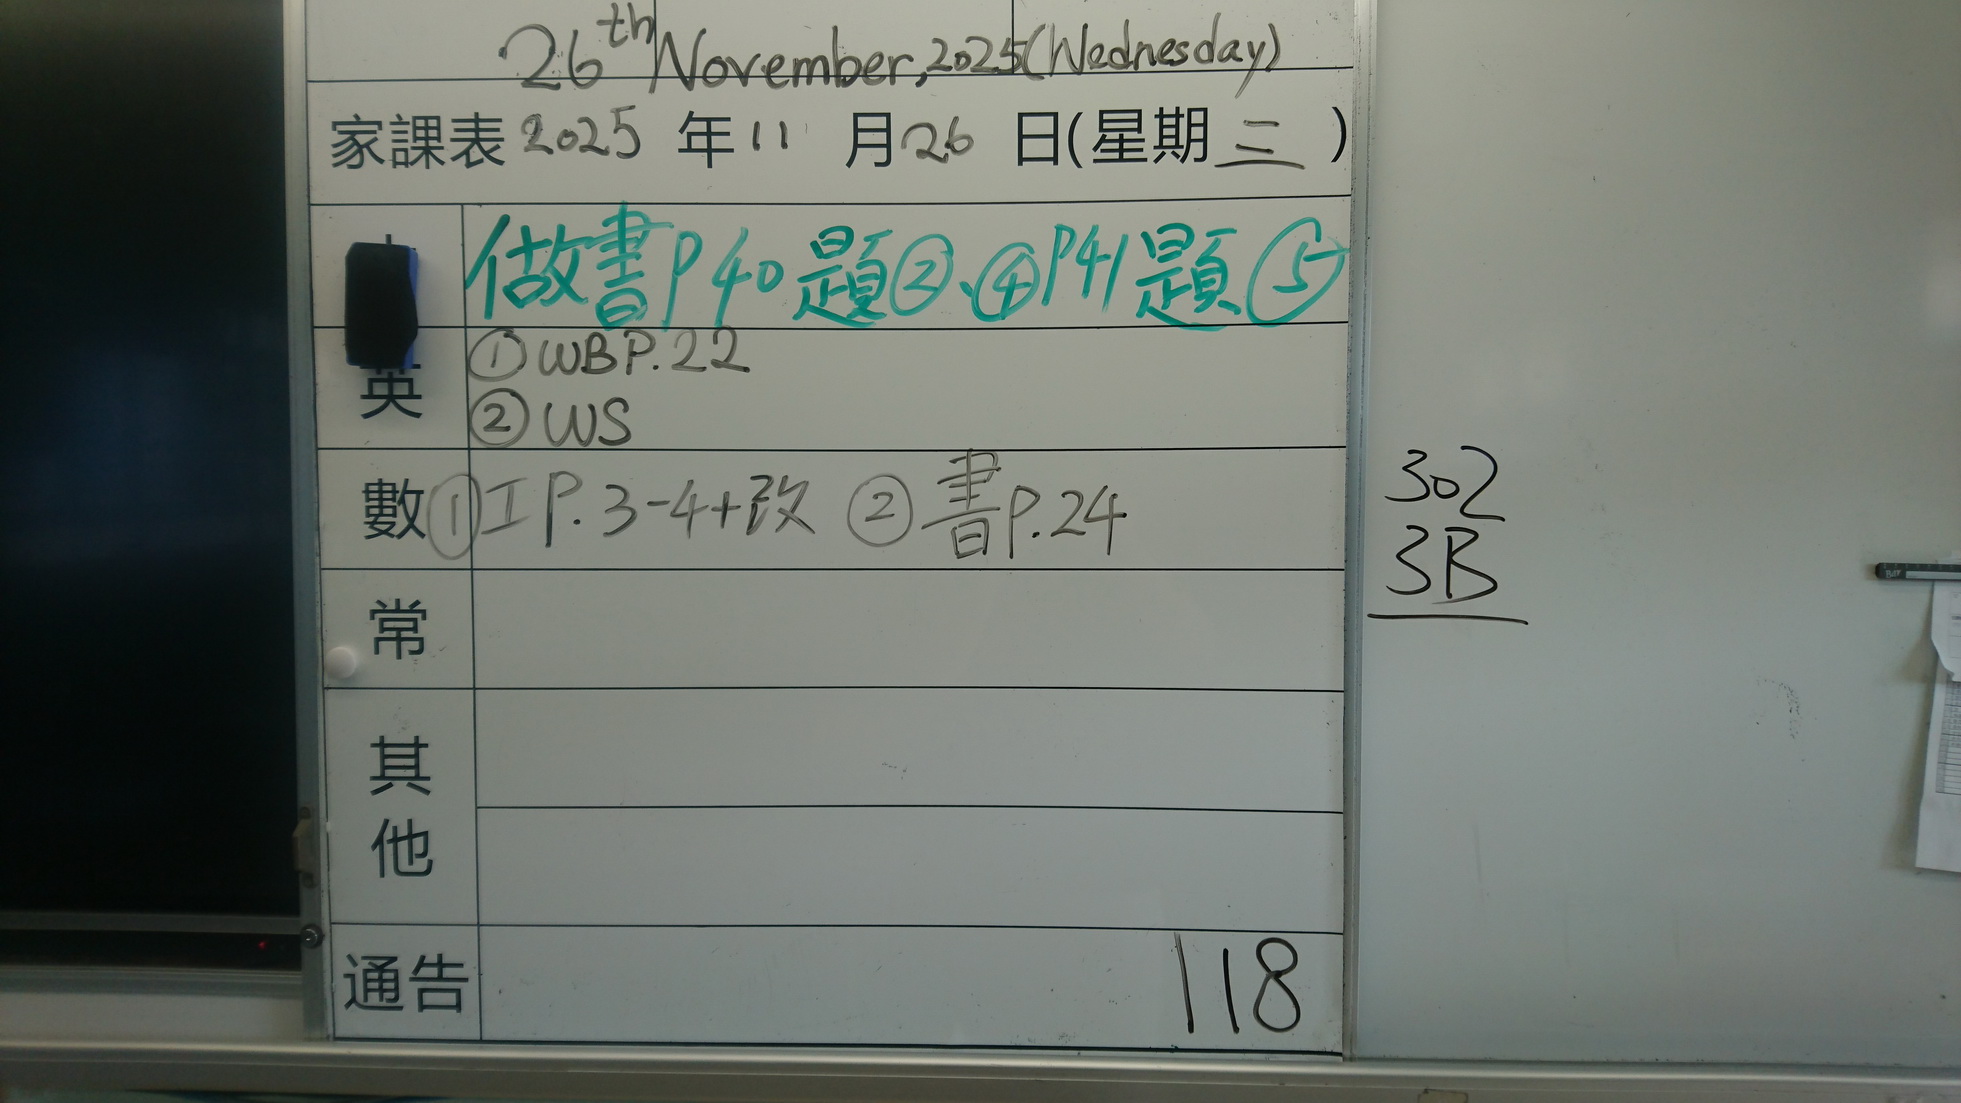 26th November, 2025 (Wednesday)
家課表 2025 年 11 月 26 日(星期 三 )
做書P40題②、④P41題⑤
英 ① WB P.22
② WS
數 ① 工 P.3-4+改 ② 書 P.24
常
其他
通告 118
302
3B